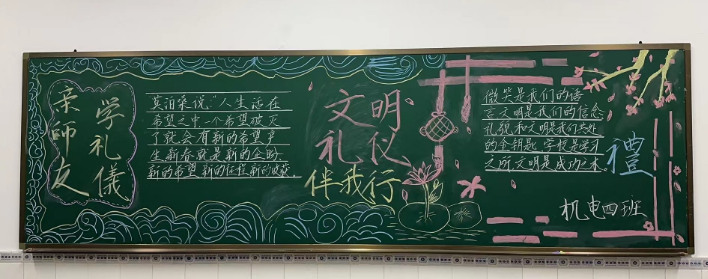 亲师友
学礼儀
莫泊桑说，"人生活在
希望之中一个希望破灭
了就会有新的希望产
生新春就是新的企盼
新的希望 新的征程 新的收获
文明
礼仪
伴我行
微笑是我们的语
言文明是我们的信念
礼貌和文明是我们共处
的金钥匙 学校是学习
之所 文明是成功之本
禮
机电四班